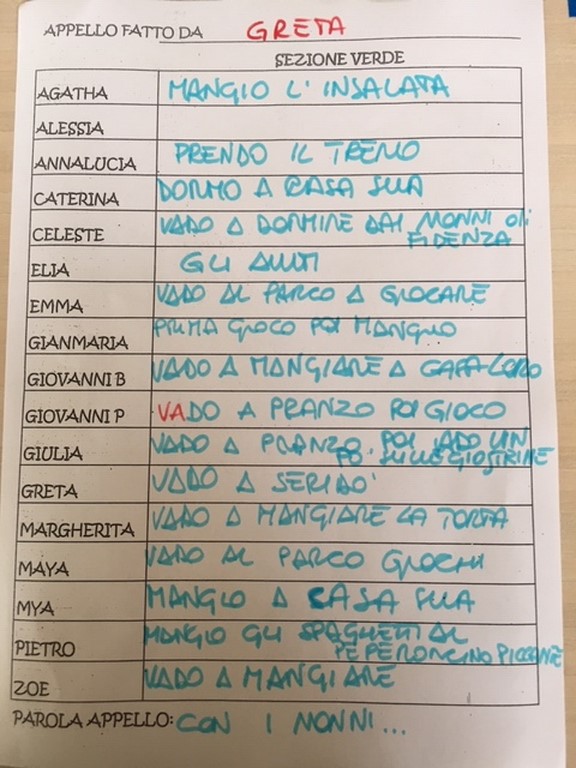 APPELLO FATTO DA GRETA
SEZIONE VERDE
AGATHA MANGIO L'INSALATA
ALESSIA
ANNALUCIA PRENDO IL TRENO
CATERINA DORMO A CASA SUA
CELESTE VADO A DORMIRE DAI NONNI DI
FIDENZA
ELIA GLI AIUTI
EMMA VADO AL PARCO A GIOCARE
GIANMARIA PRIMA GIOCO POI MANGIO
GIOVANNI B VADO A MANGIARE A CASA LORO
GIOVANNI P VADO A PRANZO POI GIOCO
GIULIA VADO A PRANZO POI VADO UN
PO' SULLE GIOSTRINE
GRETA VADO A SERIDO'
MARGHERITA VADO A MANGIARE LA TORTA
MAYA VADO AL PARCO GIOCHI
MYA MANGIO A CASA SUA
PIETRO MANGIO GLI SPAGHETTI AL
PEPERONCINO PICCANTE
ZOE VADO A MANGIARE
PAROLA APPELLO: CON I NONNI...